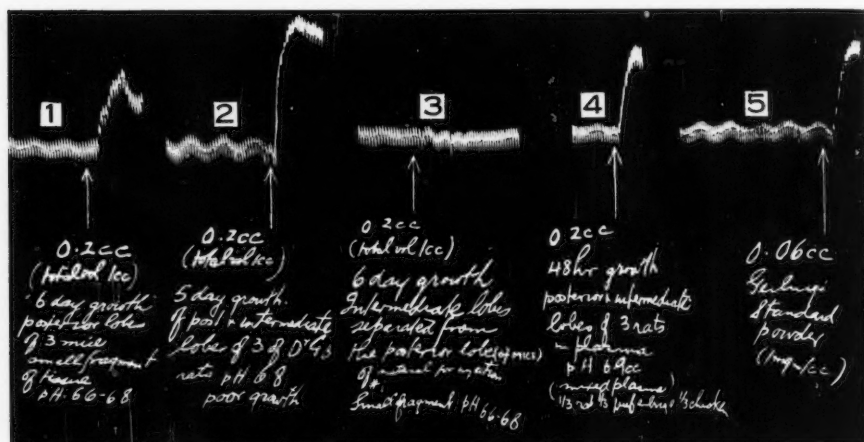 1
2
3
4
5
0.2cc
(total vol 1cc)
6 day growth
posterior lobes
of 3 mice
small fragment
of tissue
pH. 66-68
0.2cc
(total vol 1cc)
5 day growth.
of post + intermediate
lobes of 3 of Dr G's
rats pH 68
poor growth
0.2cc
(total vol 1cc)
6 day growth
Intermediate lobes
separated from
the posterior lobes (of mice)
of material for
Small fragment pH 66-68
0.2cc
48 hr growth
posterior + intermediate
lobes of 3 rats
in plasma
pH
(mixed plasma)
1/3 rat 1/3 1/3 chicken
0.06cc
Standard
powder
(1mgm/cc)